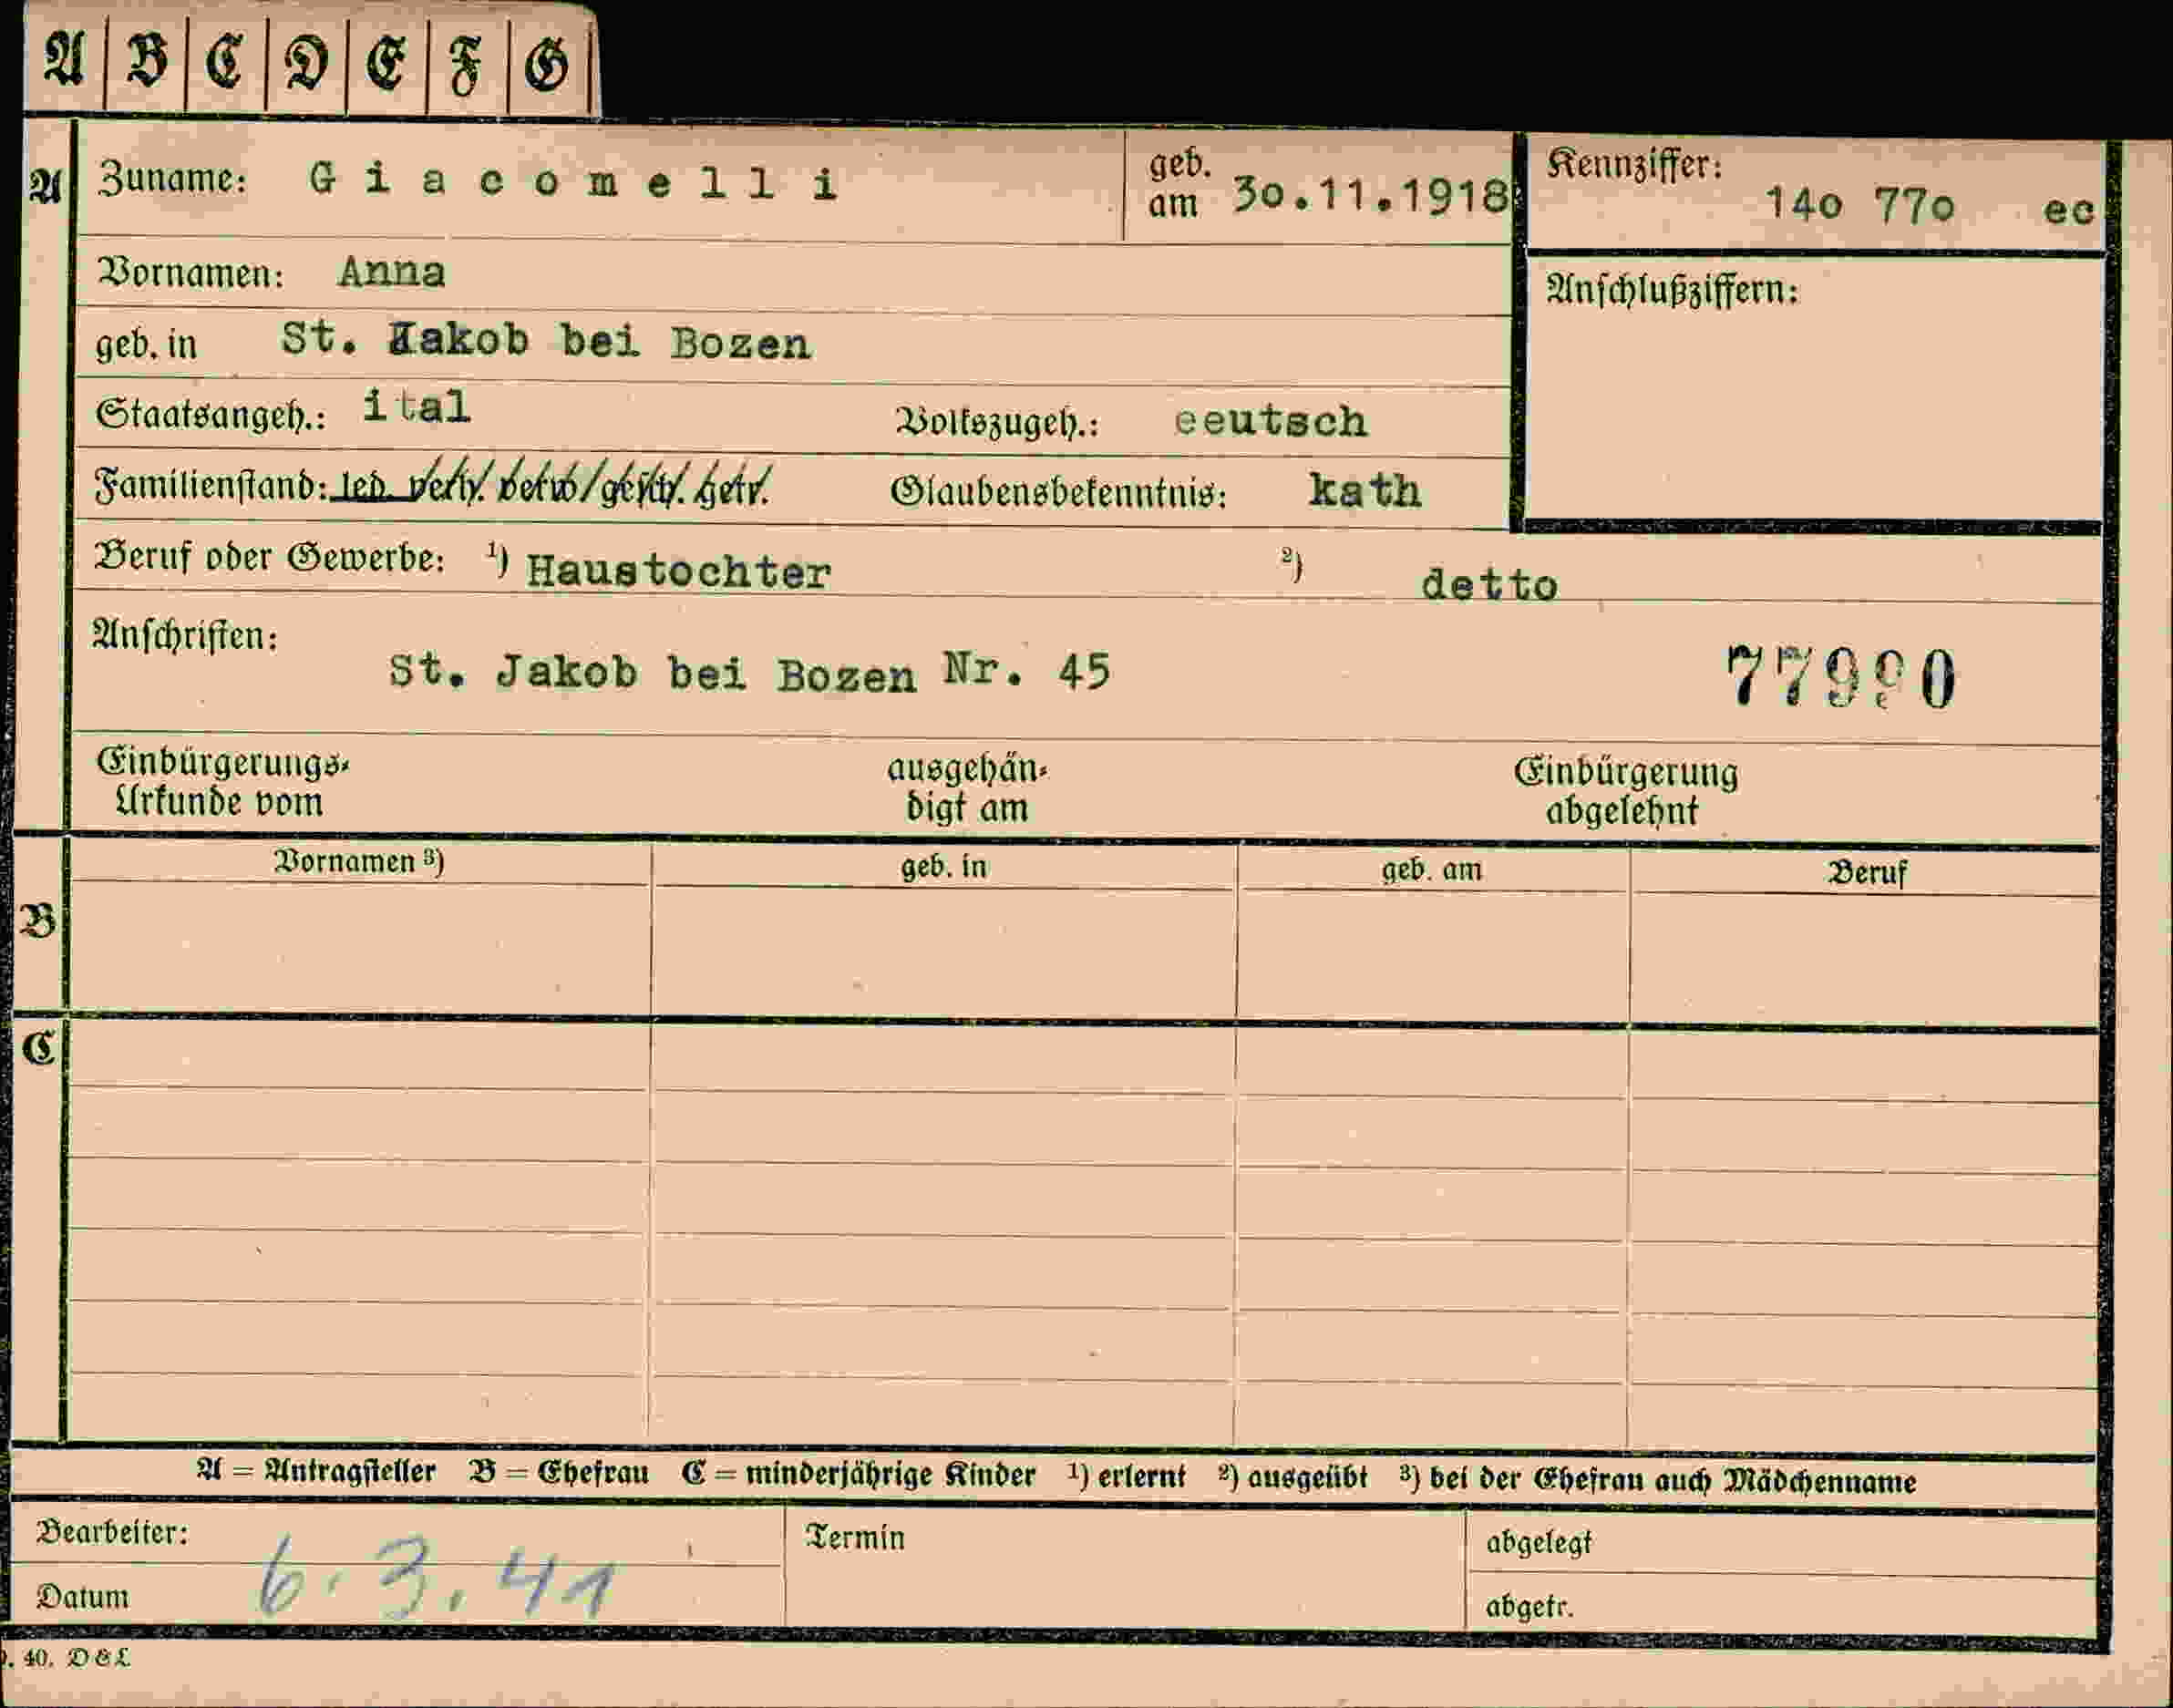 A B C D E F G
A Zuname: Giacomelli geb. am 30.11.1918 Kennziffer: 14o 77o ec
Vornamen: Anna Anschlußziffern:
geb. in St. Jakob bei Bozen
Staatsangeh.: ital Volkszugeh.: eeutsch
Familienstand: led. verh. verw. gesch. getr. Glaubensbekenntnis: kath
Beruf oder Gewerbe: ¹) Haustochter ²) detto
Anschriften:
St. Jakob bei Bozen Nr. 45 77990
Einbürgerungs- ausgehän- Einbürgerung
Urkunde vom digt am abgelehnt
Vornamen ³) geb. in geb. am Beruf
B
C
A = Antragsteller B = Ehefrau C = minderjährige Kinder ¹) erlernt ²) ausgeübt ³) bei der Ehefrau auch Mädchenname
Bearbeiter: Termin abgelegt
Datum 6.3.41 abgetr.
40. D&L